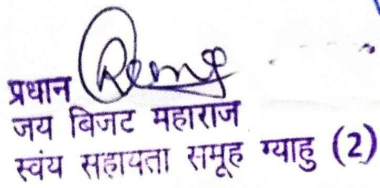 प्रधान
जय बिजट महाराज
स्वंय सहायता समूह ग्याहु (2)